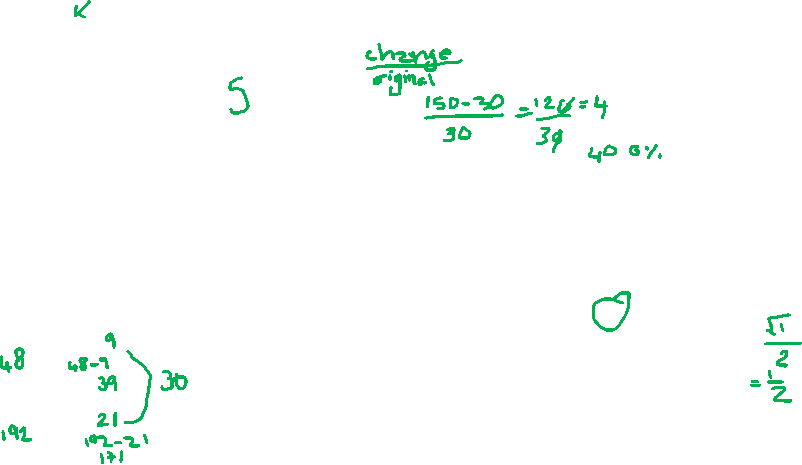 change
original
5
150-30 = 120 = 4
30 30
400%
9
48 48-9 30
39
21
192 192-21
171
2
= 1
2